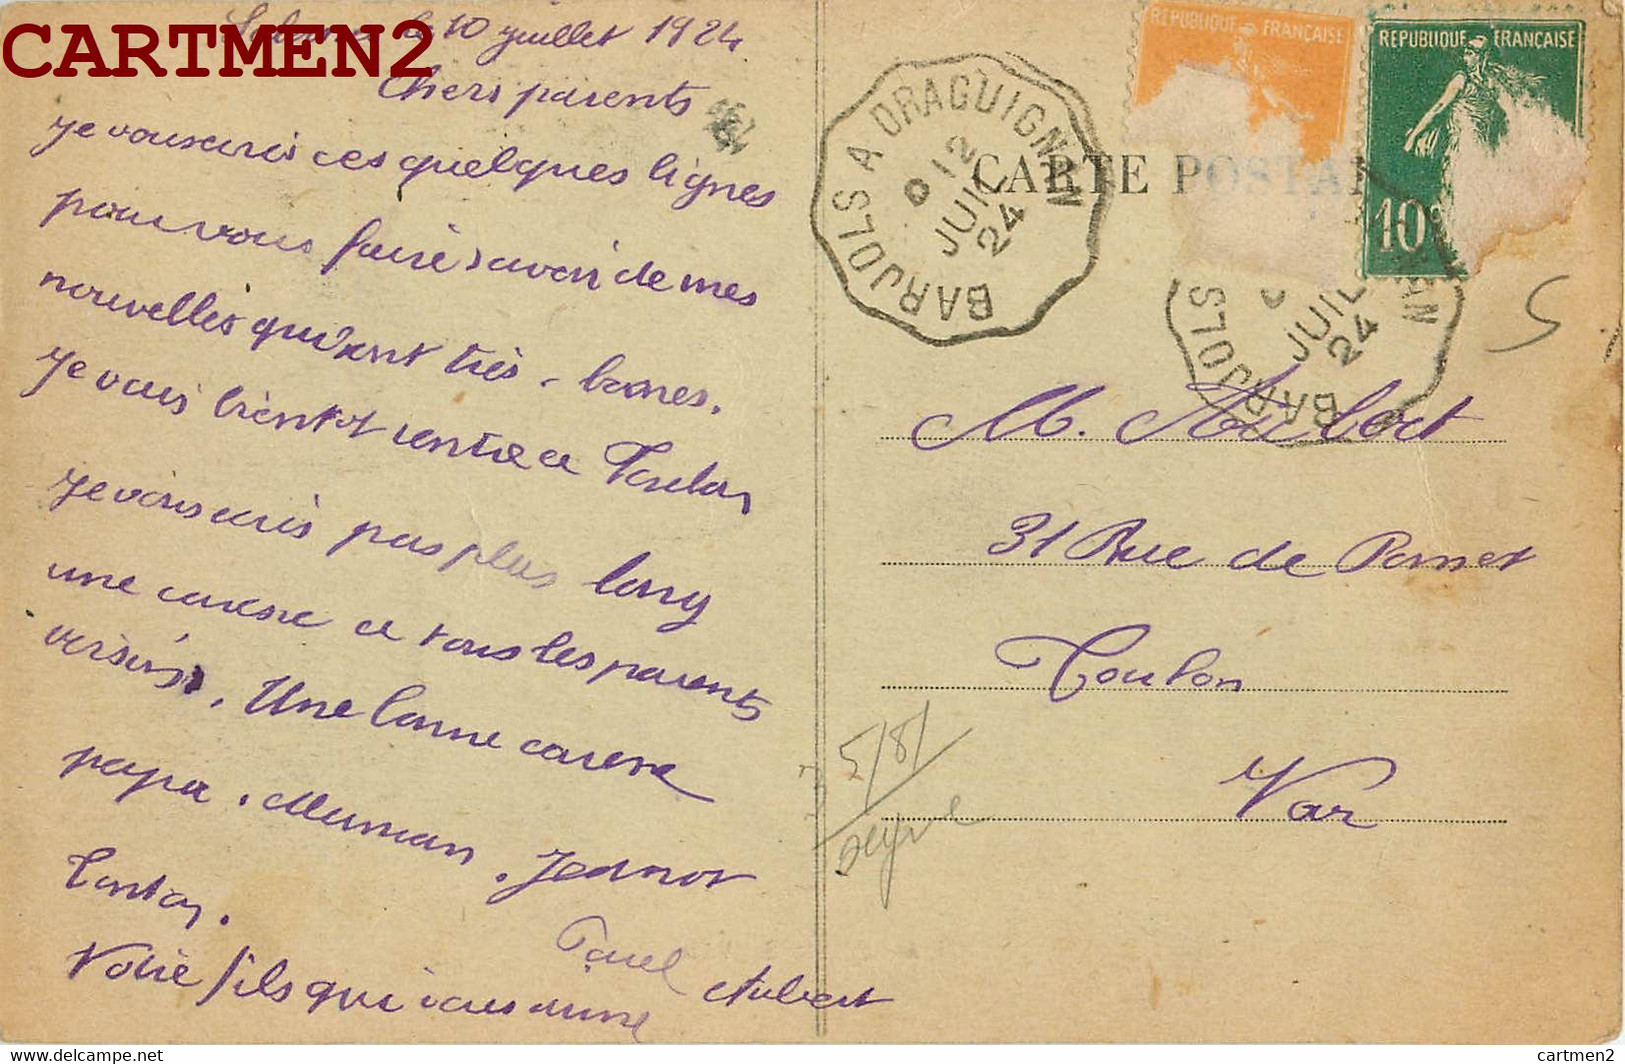 CARTMEN2
le 10 juillet 1924
Chers parents
Je vous ecris ces quelques lignes
pour vous faire savoir de mes
nouvelles qui sont très - bones.
Je vais bientot rentre a Toulon
Je vous ecris pas plus long
une caresse a tous les parents
Une bonne carese
papa. Maman. Jeannot
Tonton.
Votre fils qui vous aime
Paul Aubert
REPUBLIQUE FRANÇAISE
REPUBLIQUE FRANÇAISE
10c
CARTE POSTA
BARJOLS A DRAGUIGNAN
12
JUIL
24
BARJOLS
JUIL
24
5
M. Aubert
31 Rue de
Toulon
Var
5/8/
cartmen2
cartmen2